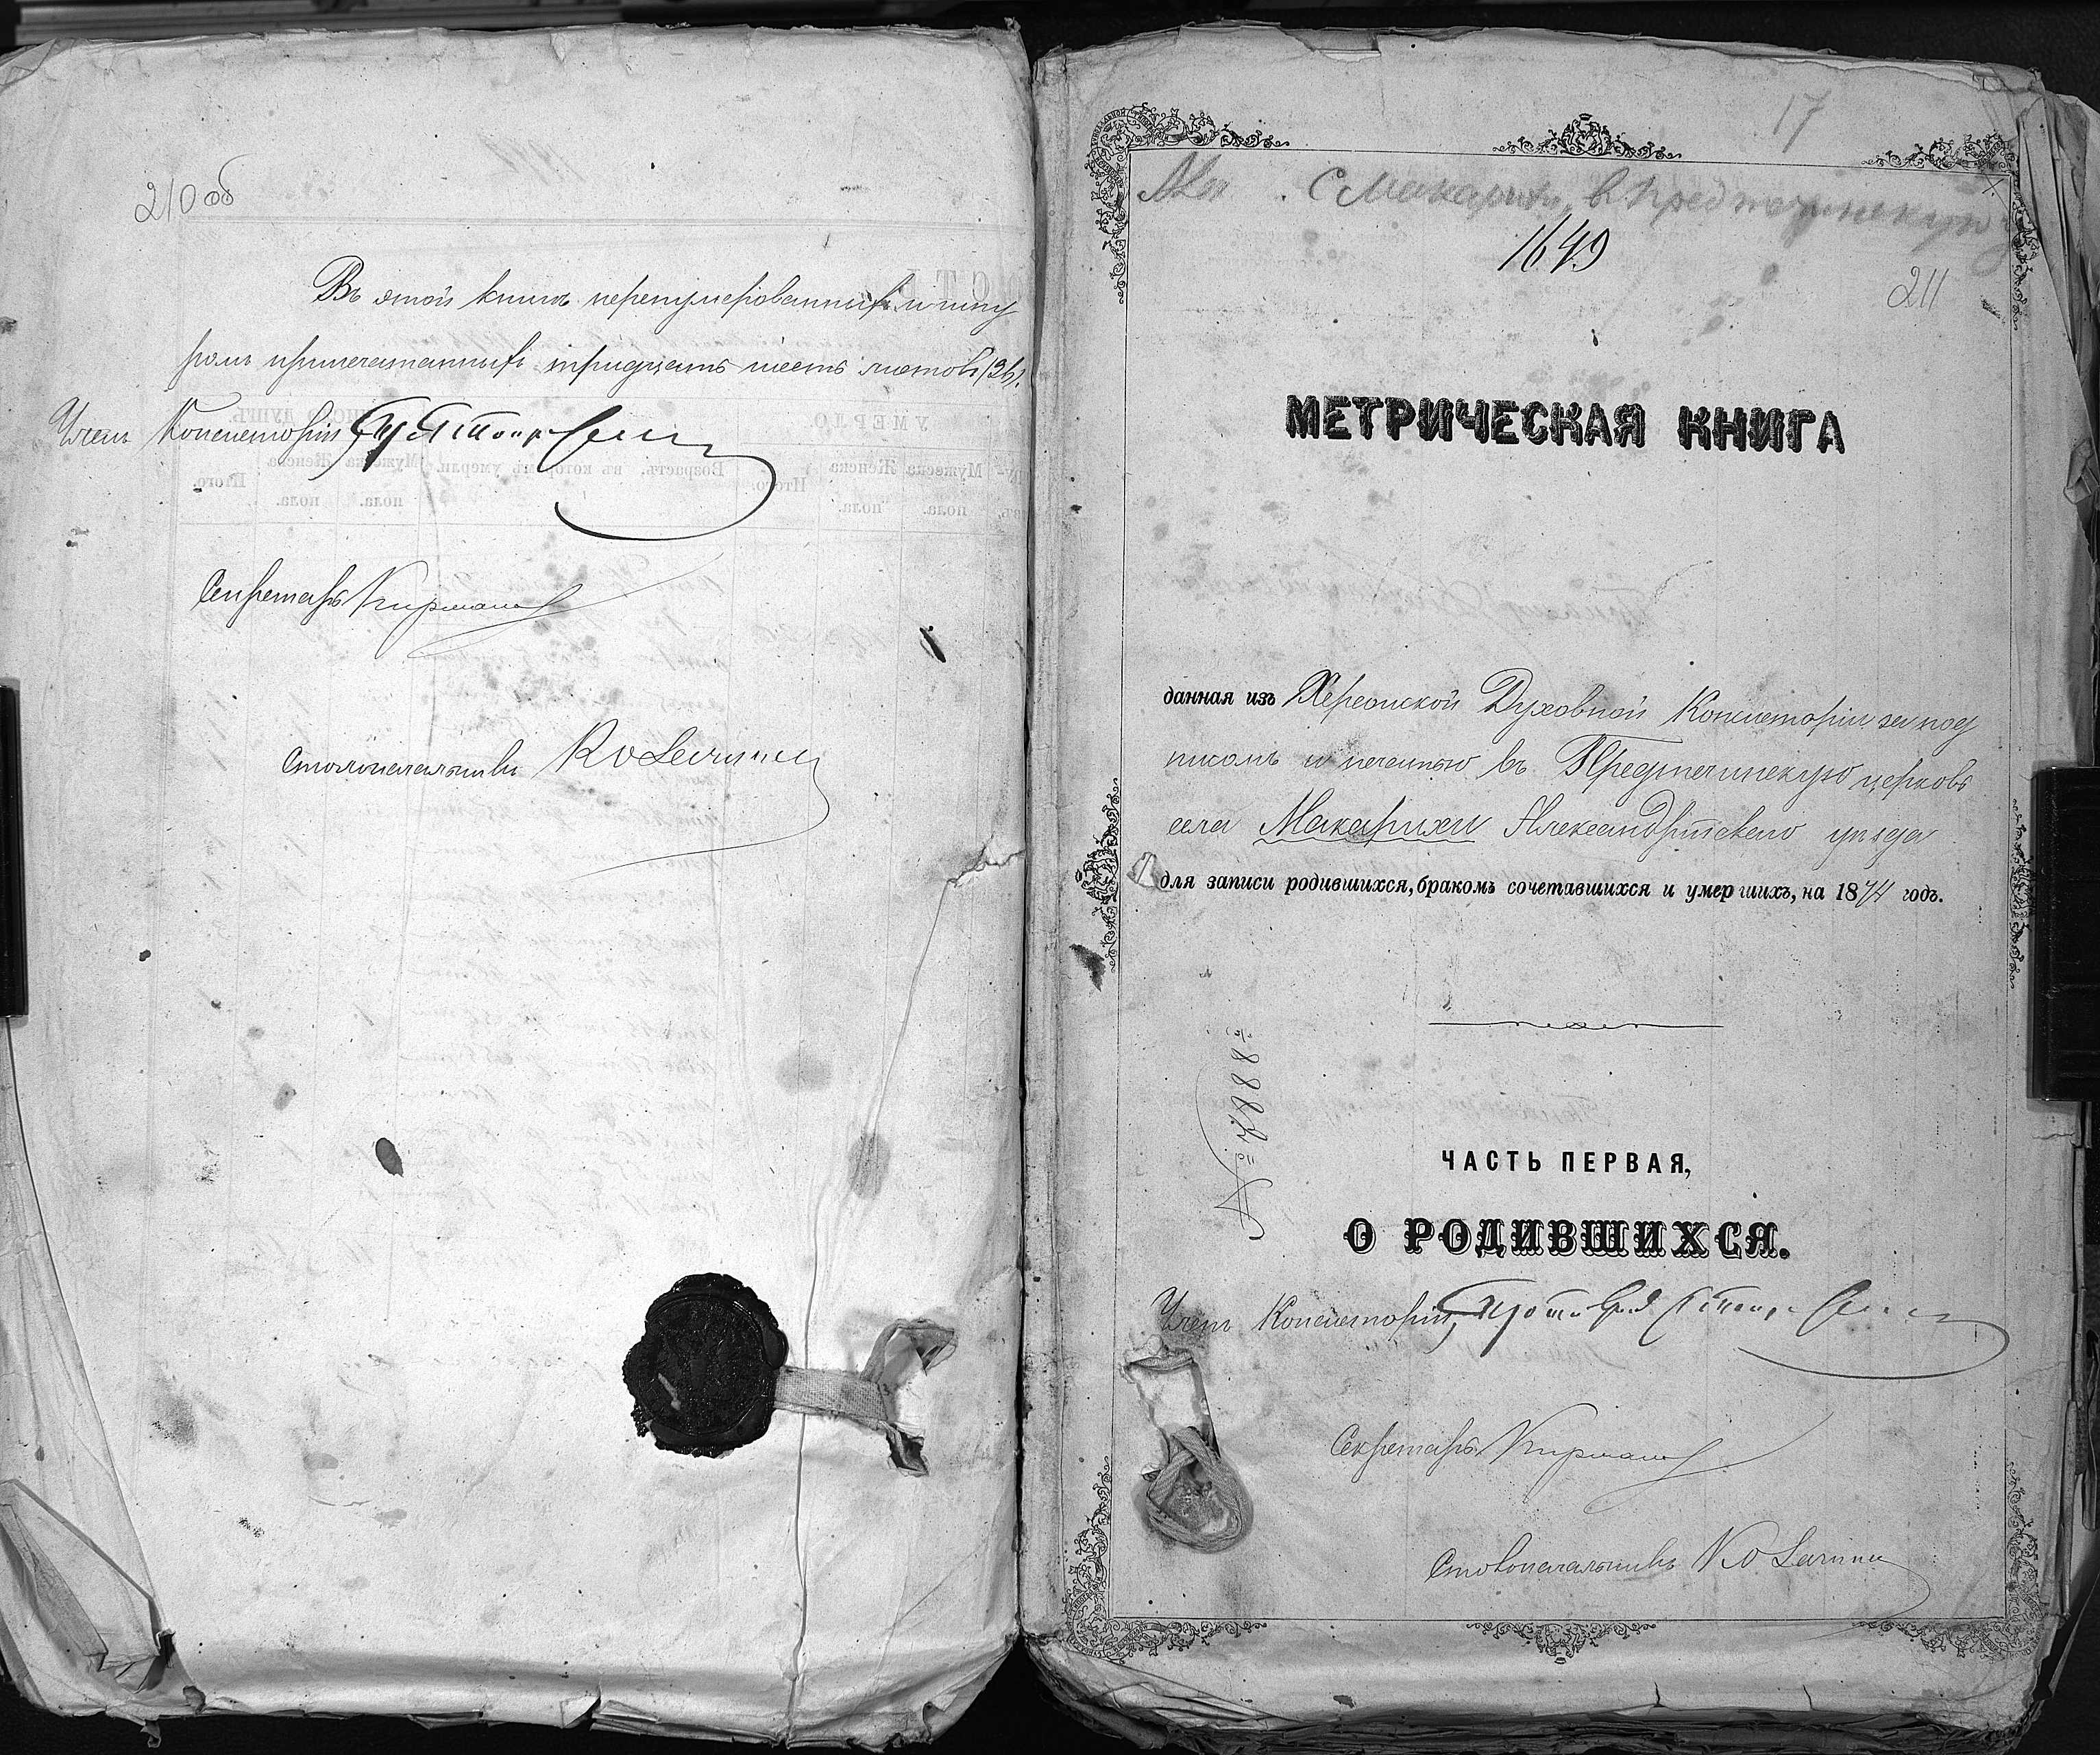 210 об
Въ этой книгѣ перенумерованныхъ и шну
ромъ припечатанныхъ тридцать шесть листовъ (36).
Членъ Консисторіи
Секретарь
Столоначальникъ
17
с Макарихи, в Предтечинскую
1649
211
МЕТРИЧЕСКАЯ КНИГА
данная изъ Херсонской Духовной Консисторіи за под
писомъ и печатью въ Предтечинскую церковь
села Макарихи Александрійскаго уѣзда
для записи родившихся, бракомъ сочетавшихся и умершихъ, на 1874 годъ.
№ 7888
ЧАСТЬ ПЕРВАЯ,
О РОДИВШИХСЯ.
Членъ Консисторіи, Протоіерей
Секретарь
Столоначальникъ